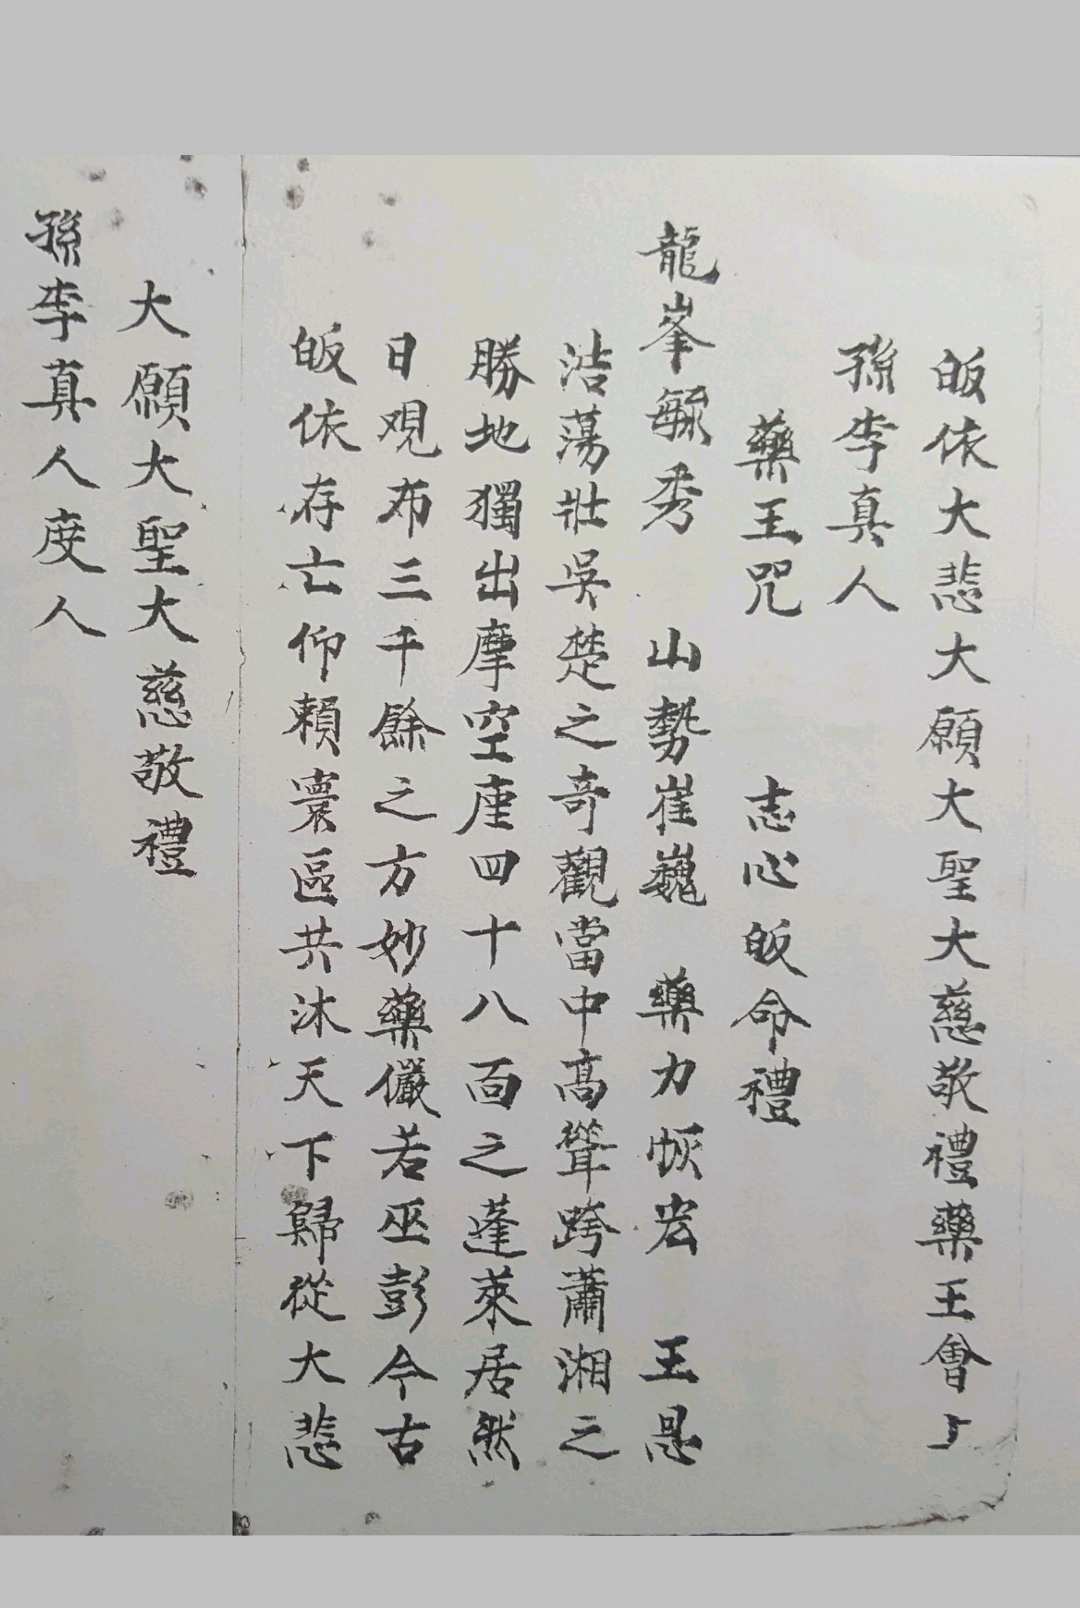 皈依大悲大願大聖大慈敬禮藥王會上
孫李真人
藥王咒 志心皈命禮
龍峯毓秀 山勢崔巍 藥力恢宏 王恩
浩蕩壯吳楚之奇觀當中高聳跨蕭湘之
勝地獨出摩空座四十八面之蓬萊居然
日观布三千餘之方妙藥儼若巫彭今古
皈依存亡仰賴寰區共沐天下歸從大悲
大願大聖大慈敬禮
孫李真人度人